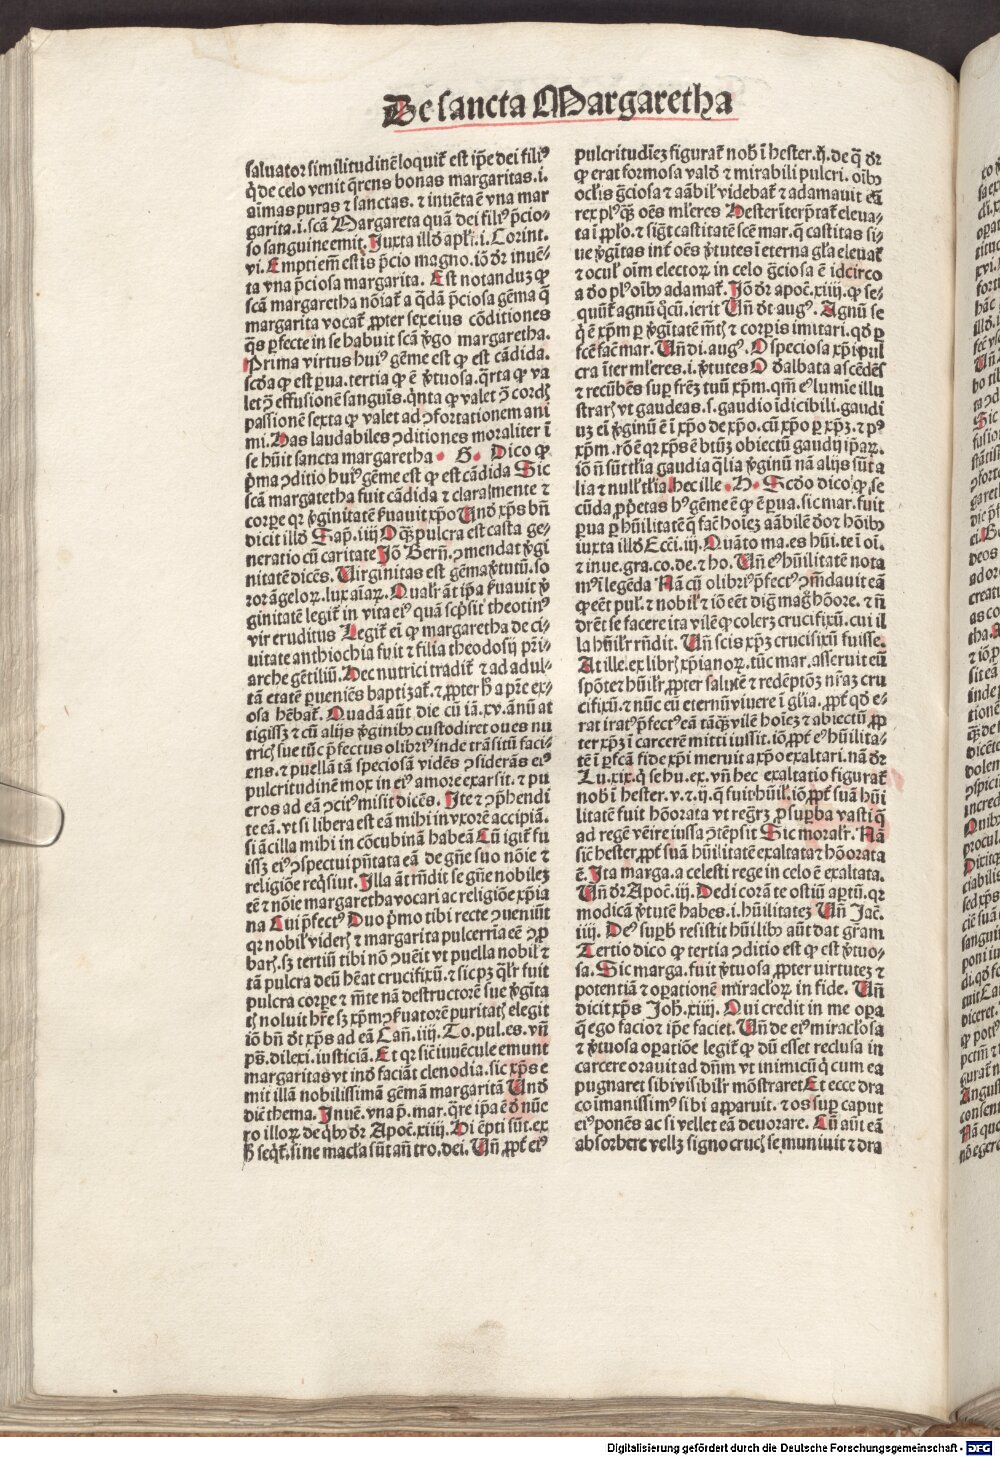 De sancta Margaretha
saluator similitudinē loquit᷑ est ip̄e dei fili⁹
q̇ de celo venit q̄rens bonas margaritas .i.
aīmas puras ⁊ sanctas. ⁊ inuēta ē vna mar
garita .i. scā Margareta quā dei fili⁹ p̄cio-
so sanguine emit. Juxta illd̄ apl̄i .i. Corint.
vi. Empti em̄ estis p̄cio magno. iō dr̄ inuē-
ta vna p̄ciosa margarita. Est notanduz ꝙ
scā margaretha nōiat᷑ a q̄dā p̄ciosa gēma q̄
margarita vocat᷑ ꝓpter sex eius cōditiones
q̄s ꝑfecte in se habuit scā v̄go margaretha.
Prima virtus hui⁹ gēme est ꝙ est cādida.
scd̄a ꝙ est ꝑua. tertia ꝙ ē v̄tuosa. q̄rta ꝙ va
let ꝯ effusionē sanguīs. q̇nta ꝙ valet ꝯ cordꝭ
passionē sexta ꝙ valet ad ꝯfortationem ani
mi. Has laudabiles ꝯditiones moraliter ī
se hūit sancta margaretha. G. Dico ꝙ
p̄ma ꝯditio hui⁹ gēme est ꝙ est cādida Sic
scā margatetha fuit cādida ⁊ clara mente ⁊
corpe qr v̄ginitatē ẜuauit xp̄o Und̄ xp̄s bn̄
dicit illd̄ Sap̄. iiij O q̄ꝫ pulcra est casta ge-
neratio cū caritate Jō Bern̄. ꝯmendat v̄gi
nitatē dicēs. Virginitas est gēma v̄tutū. so
ror āgeloꝝ. lux aīaꝝ. Qualr̄ āt ip̄a ẜuauit v̄
ginitatē legit᷑ in vita ei⁹ quā scp̄sit theotin⁹
vir eruditus Legit᷑ eī ꝙ margaretha de ci-
uitate anthiochia fuit ⁊ filia theodosij pr̄i-
arche gētiliū. Hec nutrici tradit᷑ ⁊ ad adul-
tā etatē ꝑueniēs baptizat᷑. ⁊ ꝓpter h̄ a pr̄e ex-
osa hēbat᷑. Quadā aūt die cū iā .xv. ānū at
tigissꝫ ⁊ cū alijs v̄ginibꝰ custodiret oues nu
tricꝭ sue tūc p̄fectus olibri⁹ inde trāsitū faci-
ens. ⁊ puellā tā speciosā vidēs ꝯsiderās ei⁹
pulcritudinē mox in ei⁹ amore exarsit. ⁊ pu
eros ad eā ꝯcit⁹ misit dicēs. Jte ⁊ ꝯp̄hendi
te eā. vt si libera est eā mihi in vxorē accipiā.
si ācilla mihi in cōcubinā habeā Cū igit᷑ fu
issꝫ ei⁹ ꝯspectui pn̄tata eā de gn̄e suo nōie ⁊
religiōe req̇siuit. Jlla āt rn̄dit se gn̄e nobileꝫ
eē ⁊ nōie margaretha vocari ac religiōe xp̄ia
na Cui p̄fect⁹ Duo p̄mo tibi recte ꝯueniūt
qr nobil᷑ viderꝭ ⁊ margarita pulcerria eē ꝯꝓ
barꝭ. sꝫ tertiū tibi nō ꝯuēit vt puella nobil᷑ ⁊
tā pulcra deū hēat crucifixū. ⁊ sic pꝫ q̄lr̄ fuit
pulcra corpe ⁊ mēte nā destructorē sue v̄gīta
tꝭ noluit hr̄e sꝫ xp̄m ꝯẜuatorē puritatꝭ elegit
iō bn̄ dt̄ xp̄s ad eā Can̄. iiij. To. pul. es. vn̄
ps̄. dilexi. iusticiā. Et qr sic̄ iuuēcule emunt
margaritas vt ind̄ faciāt clenodia. sic xp̄s e
mit illā nobilissimā gēmā margaritā Und̄
dic̄ thema. Jnuē. vna p̄. mar. q̄re ip̄a ē d̄ nūe
ro illoꝝ de q̇bꝰ dr̄ Apoc̄. xiiij. Hi ēpti sūt. ex
h̄ seq̇t᷑. sine macl̄a sūt an̄ tro. dei. Un̄ ꝓpt᷑ ei⁹
pulcritudīeꝫ figurat᷑ nob̄ ī hester .ij. de q̄ dr̄
ꝙ erat formosa vald̄ ⁊ mirabili pulcri. oībꝰ
oclīs gr̄ciosa ⁊ aābil᷑ videbat᷑ ⁊ adamauit eā
rex pl⁹q̄ꝫ oēs mlr̄es Hester īterp̄tat᷑ eleua-
ta ī ꝓplo. ⁊ sigt̄ castitatē scē mar. q̄ castitas si-
ue v̄gītas int᷑ oēs v̄tutes ī eterna gl̄a eleuat᷑
⁊ ocul⁹ oīm electoꝝ in celo gr̄ciosa ē idcirco
a d̄o pl⁹ oībꝰ adamat᷑. Jō dr̄ apoc̄. xiiij. ꝙ se-
quūt᷑ agnū q̇cū. ierit Un̄ dt̄ aug⁹. Agnū se
q̇ ē xp̄m ꝑ v̄gītatē m̄tꝭ ⁊ corpis imitari. qd̄ ꝑ
fcē fac̄ mar. Un̄ di. aug⁹. O speciosa xp̄i pul
cra īter mlr̄es .i. v̄tutes O d̄albata ascēdēs
⁊ recūbēs suꝑ frēꝫ tuū xp̄m. qm̄ ⁊ lumīe illu
strarꝭ vt gaudeas .s. gaudio īdicibili. gaudī
uꝫ eī v̄ginū ē ī xp̄o de xp̄o. cū xp̄o ꝑ xp̄ꝫ. ⁊ ꝓꝑ
xp̄m. rō ē qr xp̄s ē btm̄ꝫ obiectū gaudij ip̄aꝝ.
iō n̄ sūt tl̄ia gaudia q̄lia v̄ginū nā alijs sūt a
lia ⁊ null⁹ tl̄ia hec ille. H. Scd̄o dico ꝙ se
cūda ꝓp̄etas h⁹ gēme ē ꝙ ē ꝑua. sic mar. fuit
ꝑua ꝑ hūilitatē q̄ fac̄ hoīeꝫ aābilē d̄o ⁊ hōībꝰ
iuxta illd̄ Ecc̄i. iij. Quāto ma. es hūi. te ī oī.
⁊ inue. gra. co. de. ⁊ ho. Un̄ e⁹ hūilitatē nota
m⁹ ī legēda Nā cū olibri⁹ p̄fect⁹ ꝯm̄dauit eā
ꝙ eēt pul. ⁊ nobil᷑ ⁊ iō eēt dig̃ magꝰ hōore. ⁊ n̄
dr̄et se facere ita vilē ꝙ colerꝫ crucifixū. cui il
la hūilr̄ rn̄dit. Un̄ scis xp̄ꝫ crucifixū fuisse.
At ille. ex librꝭ xp̄ianoꝝ. tūc mar. asseruit eū
spōte ⁊ hūilr̄ ꝓpter salutē ⁊ redēptōꝫ nr̄aꝫ cru
cifixū. ⁊ nūc eū eternū viuere ī gl̄ia. ꝓpt᷑ qd̄ e-
rat irat⁹ p̄fect⁹ eā tāq̄ꝫ vilē hoīeꝫ ⁊ abiectū ꝓp
ter xp̄ꝫ ī carcerē mitti iussit. iō ꝓpt᷑ e⁹ hūilita-
tē ī ꝑfcā fide xp̄i meruit a xp̄o exaltari. nā dr̄
Lu. xix. q̇ se hu. ex. vn̄ hec exaltatio figurat᷑
nob̄ ī hester .v. ⁊ ij. q̄ fuit hūil. iō ꝓpt᷑ suā hūi
litatē fuit hōorata vt reg̃ꝫ ꝓ suꝑba vasti q̄
ad regē vēire iussa ꝯtēpsit Sic moralr̄. Nā
sic̄ hester ꝓpt᷑ suā hūilitatē exaltata ⁊ hōorata
ē. Jta marga. a celesti rege in celo ē exaltata.
Un̄ dr̄ Apoc̄. iij. Dedi corā te ostiū aꝑtū. qr
modicā v̄tutē habes .i. hūilitateꝫ Un̄ Jac̄.
iiij. De⁹ suꝑbꝭ resistit hūilibꝰ aūt dat gr̄am
Tertio dico ꝙ tertia ꝯditio est ꝙ est v̄tuo-
sa. Sic marga. fuit v̄tuosa ꝓpter virtuteꝫ ⁊
potentiā ⁊ operationē miracl̄oꝝ in fide. Un̄
dicit xp̄s Joh̄. xiiij. Qui credit in me opa
q̄ ego facioꝫ ip̄e faciet. Un̄ de ei⁹ miracl̄osa
⁊ v̄tuosa oꝑatiōe legit᷑ ꝙ dū esset reclusa in
carcere orauit ad dn̄m vt inimicū q̇ cum ea
pugnaret sibi visibilr̄ mōstraret Et ecce dra
co īmanissim⁹ sibi apparuit. ⁊ os suꝑ caput
ei⁹ ponēs ac si vellet eā deuorare. Cū aūt eā
absorbere vellꝫ signo crucꝭ se muniuit ⁊ dra
Digitalisierung gefördert durch die Deutsche Forschungsgemeinschaft - DFG